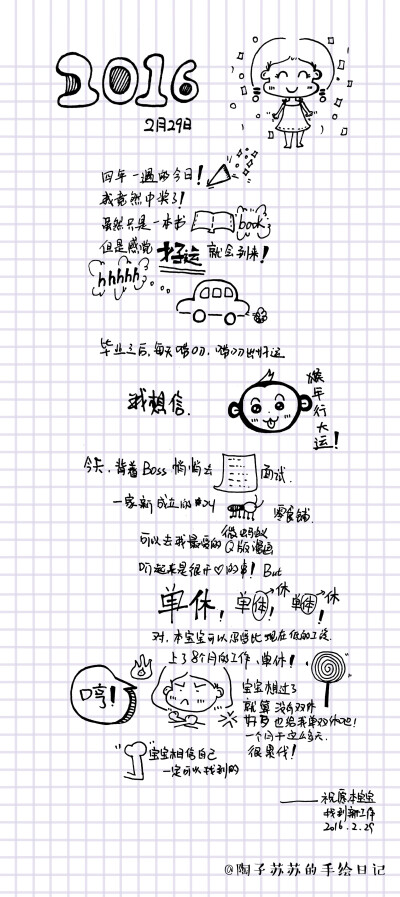 2016
2月29日
四年一遇的今日!
我竟然中奖了!
虽然只是一本书 book
但是感觉 好运 就会到来!
hhhhh
毕业之后,每天嘚叨,嘚叨出好运
我想信.
猴年行大运!
今天,背着Boss 悄悄去 面试.
一家新成立的 零食铺.
微蚂蚁
可以去我最爱的Q版漫画
听起来是很开♡的事! But
单休, 单休, 单休
对,本宝宝可以忍受比现在低的工资
上了8个月的工作,单休!
哼!
宝宝想过了
就算没有双休
好歹也给我单双休吧!
一个月干这么多天.
很累代!
宝宝相信自己
一定可以找到的
祝愿本宝宝
找到新工作
2016.2.29
@陶子苏苏的手绘日记